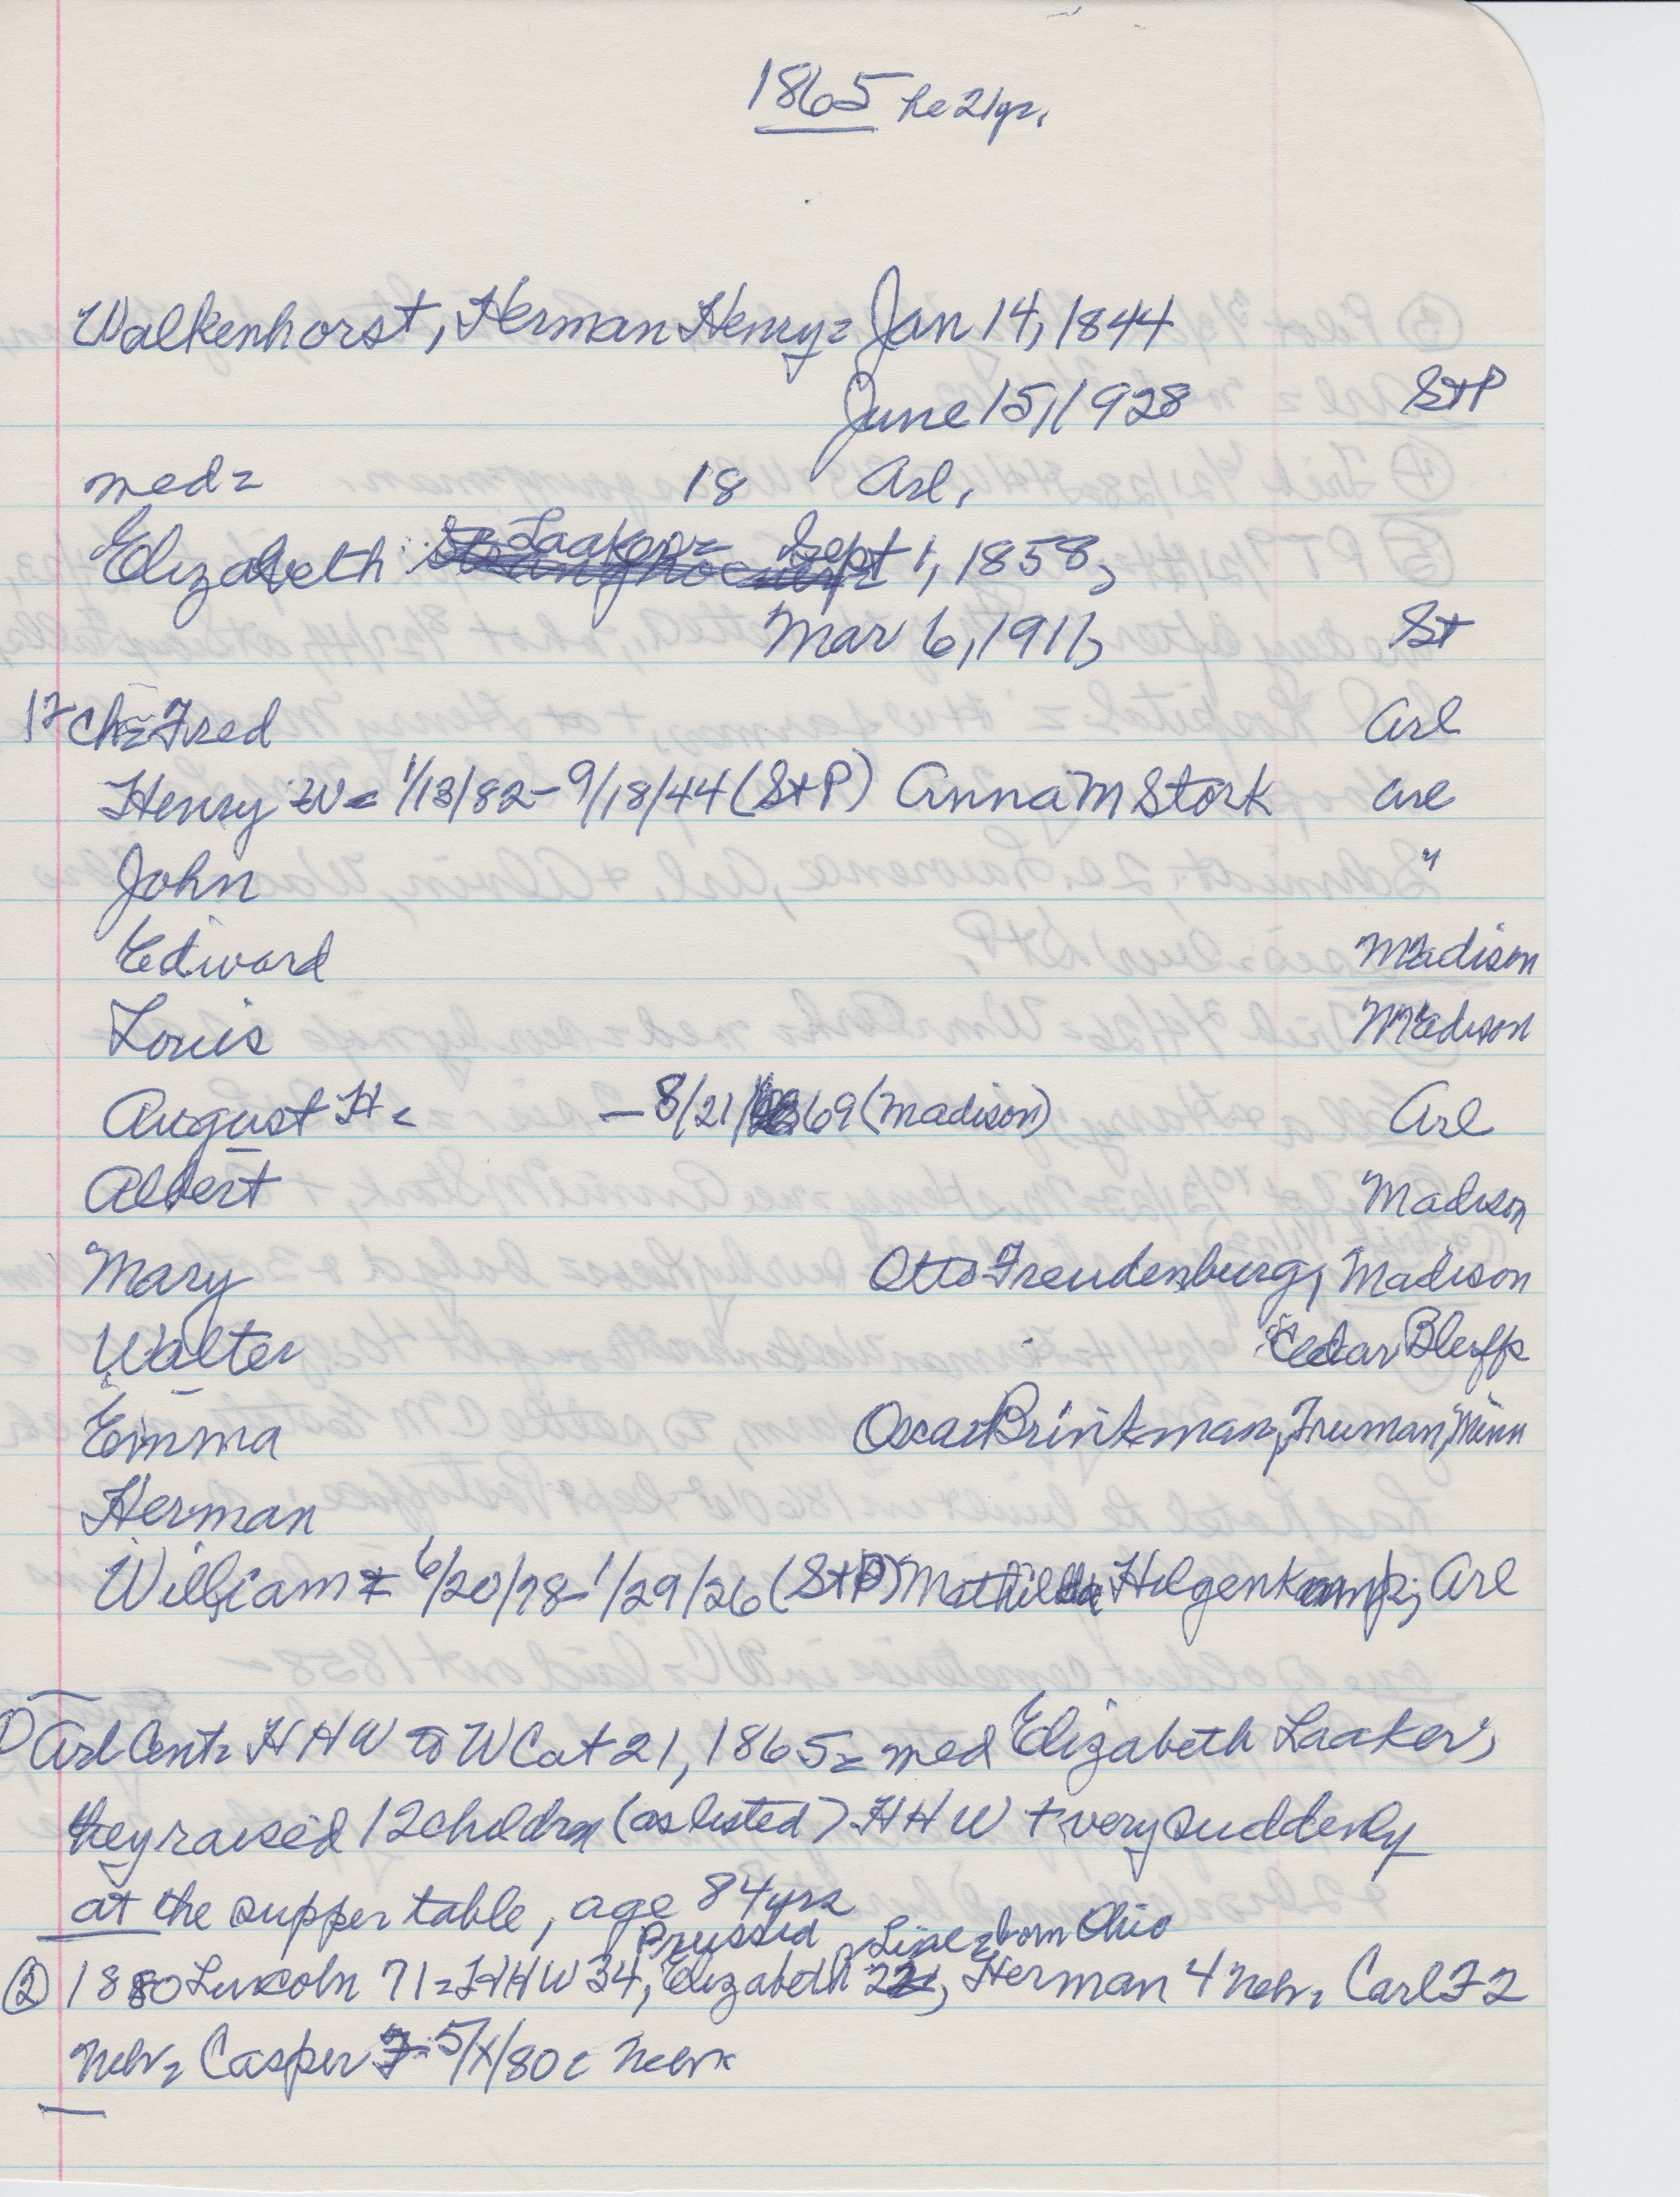 1865 he 21 yr.
Walkenhorst, Herman Henry = Jan 14, 1844
June 15, 1928 St P
med = 18 Arl.
Elizabeth Laaker = Sept 1, 1858,
Mar 6, 1911, St
12 ch = Fred Arl
Henry W = 1/13/82 - 9/18/44 (St P) Anna M Stork Arl
John "
Edward Madison
Louis Madison
August H = - 8/21/69 (Madison) Arl
Albert Madison
Mary Otto Freudenburg, Madison
Walter Cedar Bluffs
Emma Oscar Brinkman, Truman, Minn
Herman
William = 6/20/78 - 1/29/26 (St P) Mathilda Hilgenkamp, Arl
① Arl Cent = HHW to WC at 21, 1865 = med Elizabeth Laaker,
they raised 12 children (as listed) HHW + very suddenly
at the supper table, age 84 yrs
Prussia born Ohio
② 1880 Lincoln 71 = HHW 34, Elizabeth 22, Herman 4 Nebr, Carl F 2
Nebr = Casper F 5/X/80 = Nebr